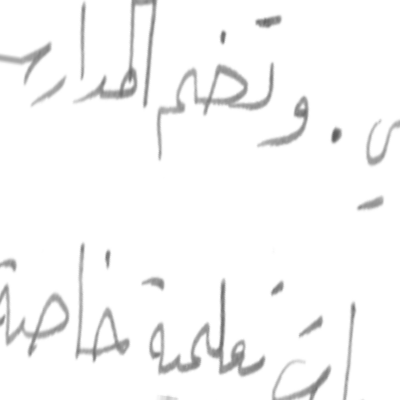 ي. وتضم المدارس
ات تعليمية خاصة